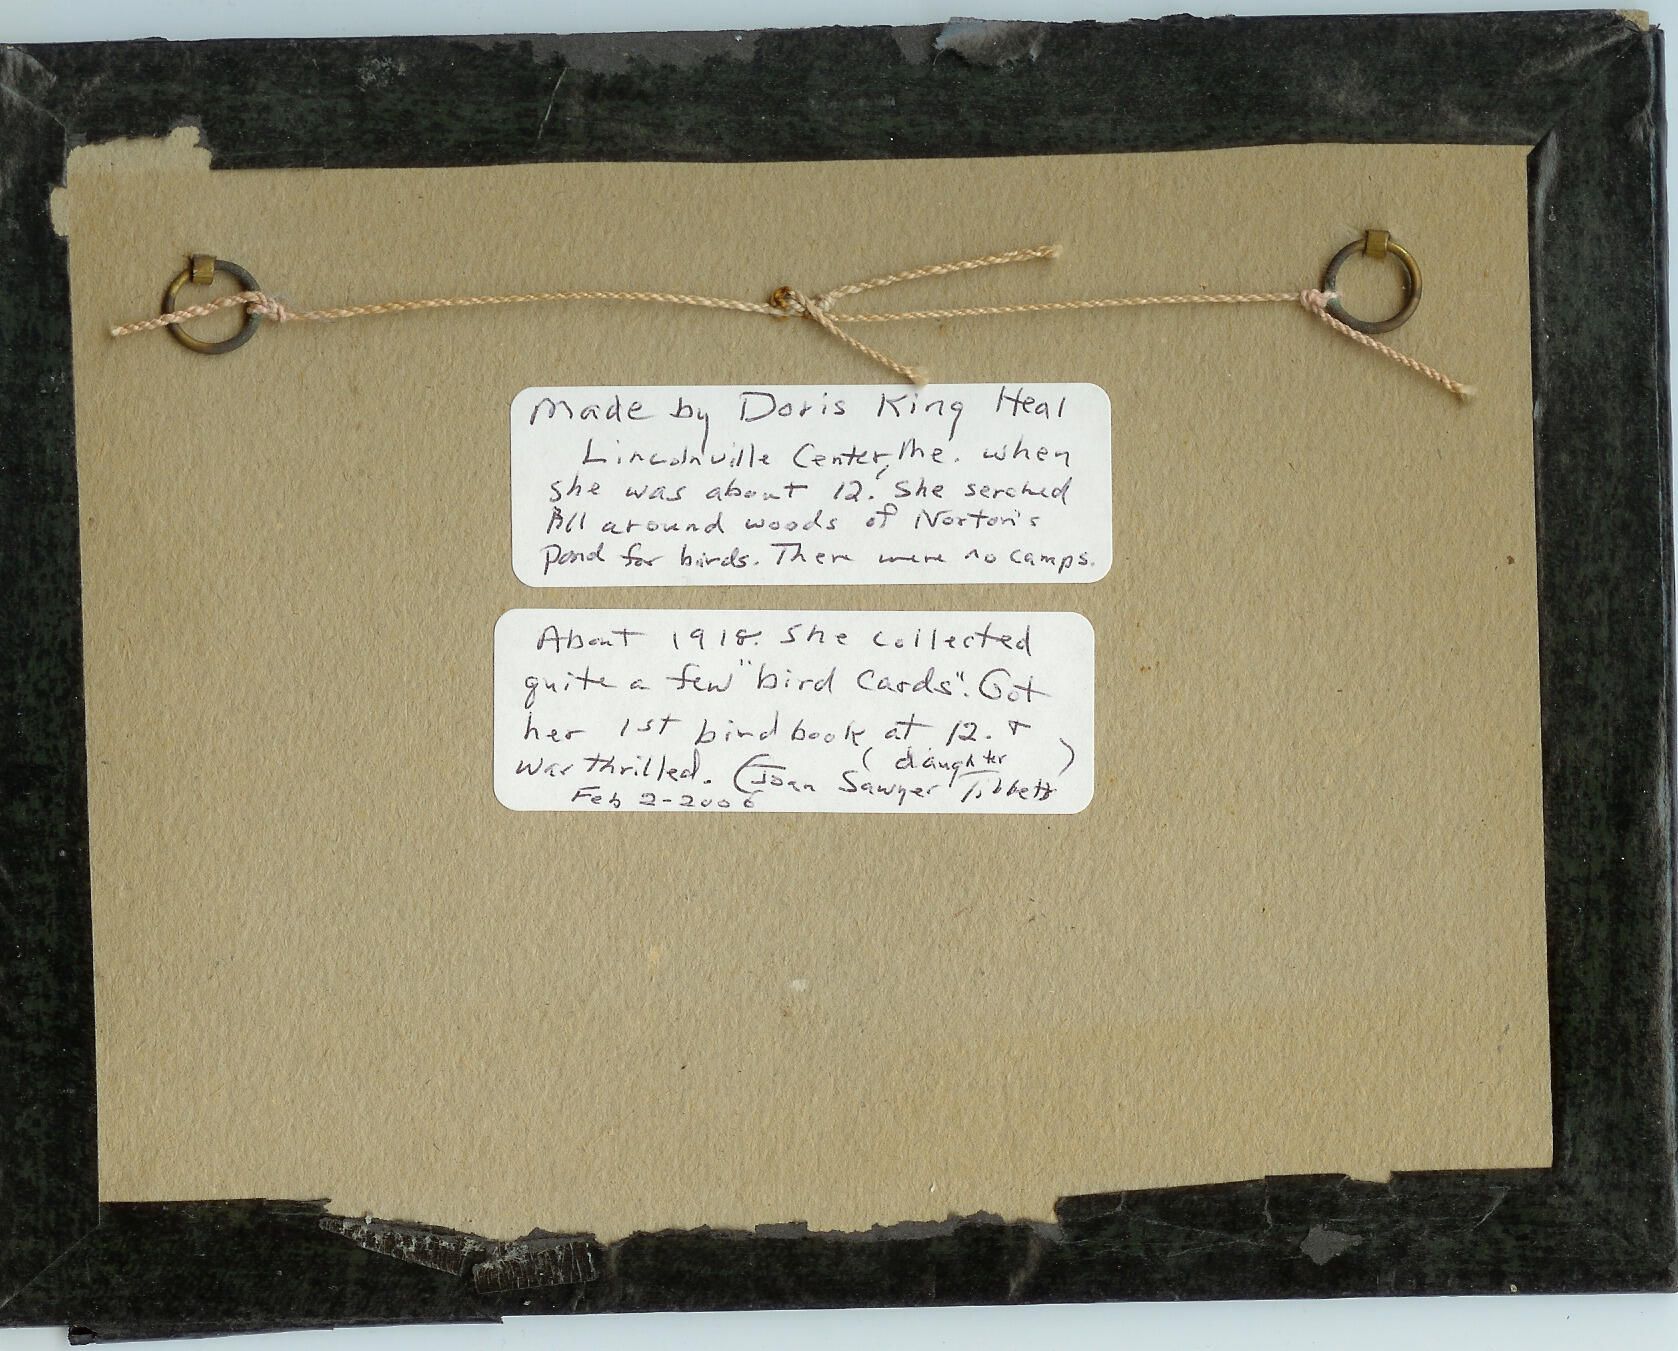 Made by Doris King Heal
Lincolnville Center, Me. when
she was about 12. She serched
All around woods of Norton's
Pond for birds. There were no camps.
About 1918. She collected
quite a few "bird cards". Got
her 1st bird book at 12. +
was thrilled. (Joan Sawyer Tibbetts
(daughter)
Feb 2-2006